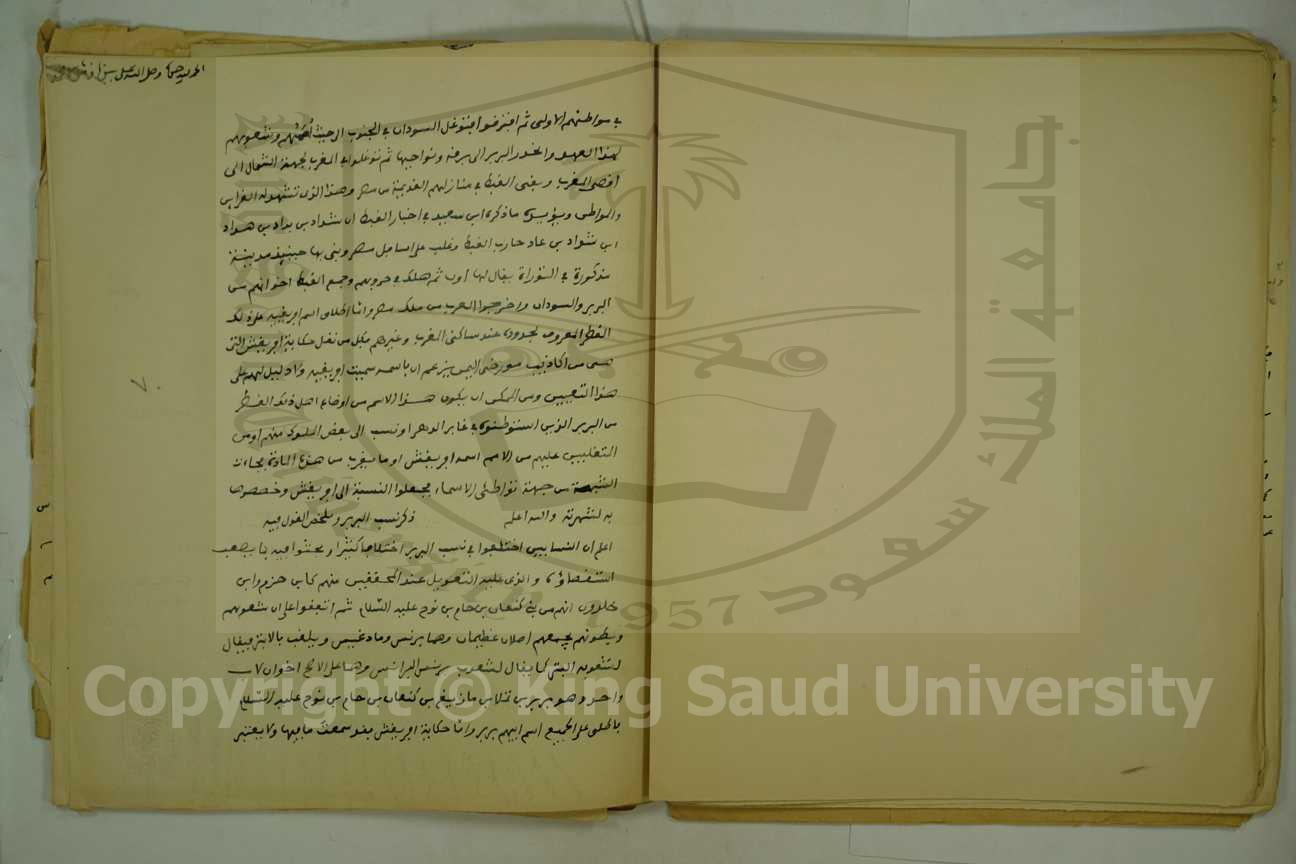 الحمد لله وحده وصلى الله على
في مواطنهم الاولى ثم افترقوا فتوغل السودان في الجنوب الى حيث أممهم وشعوبهم
لهذا العهد وانحدر البربر الى برقة ونواحيها ثم توغلوا في المغرب لجهة الشمال الى
اقصى المغرب وبقي القبط في منازلهم القديمة من مصر وهذا الذي تشهد له القرائن
والمواطن ويؤيده ما ذكره ابن سعيد في اخبار القبط ان شداد بن بداد بن هداد
ابن شداد بن عاد حارب القبط وغلب على اسافل مصر وبنى بها حينئذ مدينة
مذكورة في التوراة يقال لها اون ثم هلك في حروبهم وجمع القبط اخوانهم من
البربر والسودان واخرجوا العرب من ملك مصر واما اطلاق اسم افريقية على ذلك
القطر المعروف لحدوده عند ساكني المغرب وغيرهم فكل من نقل حكاية افريقش التي
هي من اكاذيب مورخي اليمن يزعم ان باسمه سميت افريقية ولا دليل لهم على
هذا التعيين ومن الممكن ان يكون هذا الاسم من اوضاع اهل ذلك القطر
من البربر الذين استوطنوه في غابر الدهر او نسب الى بعض الملوك منهم او من
المتغلبين عليهم من الامم اسمه افريقش او ما يقرب من هذه المادة فجاءت
الشبهة من جهة تواطئ الاسماء فجعلوا النسبة الى افريقش وخصصوها
به لشهرته والله اعلم ذكر نسب البربر وملخص القول فيه
اعلم ان النسابين اختلفوا في نسب البربر اختلافا كثيرا وبحثوا فيه بما يصعب
استقصاؤه والذي عليه التعويل عند المحققين منهم كابن حزم وابن
خلدون انهم من بني كنعان بن حام بن نوح عليه السلام ثم اتفقوا على ان شعوبهم
وبطونهم يجمعهم اصلان عظيمان وهما برنس ومادغيس ويلقب بالابتر فيقال
لشعوبه البتر كما يقال لشعوب برنس البرانس وهما على الاصح اخوان لاب
واحد وهو بربر بن تملا بن مازيغ بن كنعان بن حام بن نوح عليه السلام
فاطلق على الجميع اسم ابيهم بربر واما حكاية افريقش فقد سمعت ما فيها ولا يعتبر